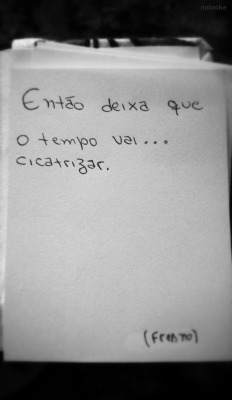 Então deixa que
o tempo vai...
cicatrizar.
(Fresno)